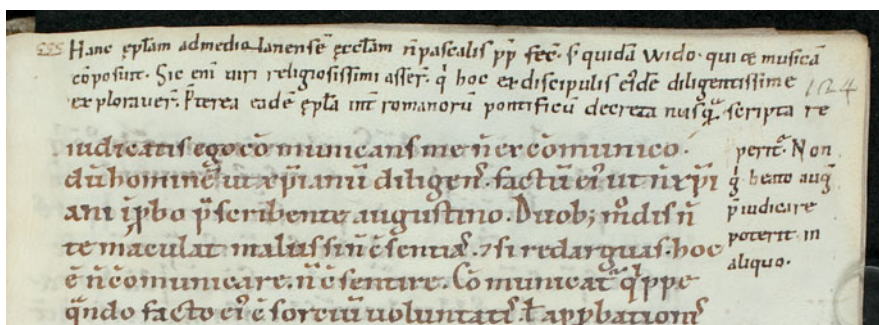 Hanc ep̄lam ad mediolanensē ęcclam n̄ pascalis pp̄ fec̄. s; quidā wido. qui & musicā
cōposuit. Sic eni uiri religiosissimi asser̄. q̇ hoc ex discipulis ei'dē diligentissime
explorauer̄. p̄terea eadē ep̄la int̄ romanorū pontificū decreta nusq̄ scripta re
124
iudicatis ego cōmunicans me n̄ excōmunico.
dū hominē ut xp̄ianū diligen̄. factū ei' ut n̄ xp̄i
ani īp̄bo p̄scribente augustino. Duob; m̊dis n̄
te maculat malus si n̄ c̄sentias. ⁊ si redarguas. hoc
ē n̄ cōmunicare. n̄ c̄sentire. Cōmunicat' q̇ppe
q̄ndo facto ei' c̄sorciū uoluntatis ł app̄bationis
perit̄. Non
q̇ beato auḡ
p̄iudicare
poterit in
aliquo.